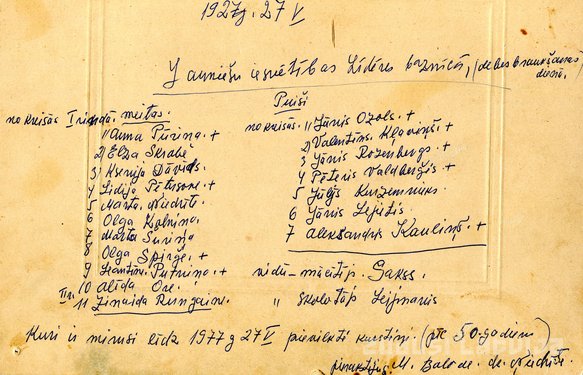 1927g. 27 V
Jauniešu iesvētības Lēdēres baznīcā, (debes braukšanas dienā)
no kreisās I rindā. meitas:
1) Anna Pūriņa. +
2) Elza Skrabe
3) Ksenija Dāvids.
4 Lidija Pētersone. +
5 Marta. Niedrīte.
6 Olga Kalniņa.
7 Marta Suriņa
8 Olga Spirģe. +
9 Leontīne Putniņa. +
10 Alīda Ore.
II r. 11 Zinaida Rungaine.
Puiši
no kreisās. 1) Jānis Ozols. +
2) Valentīns. Kļaviņš. +
3 Jānis Rozenbergs. +
4 Pēteris Valdbergis. +
5 Jūlijs Kurzemnieks.
6 Jānis Lejiņš.
7 Aleksandrs Kauliņš. +
vidū – mācītāj. Sakss.
" skolotāj Leijnieks
Kuri ir miruši līdz 1977 g 27 V pievilkti krustiņi (pēc 50. gadiem)
pierakstīja. M. Balode. dz. Niedrīte.